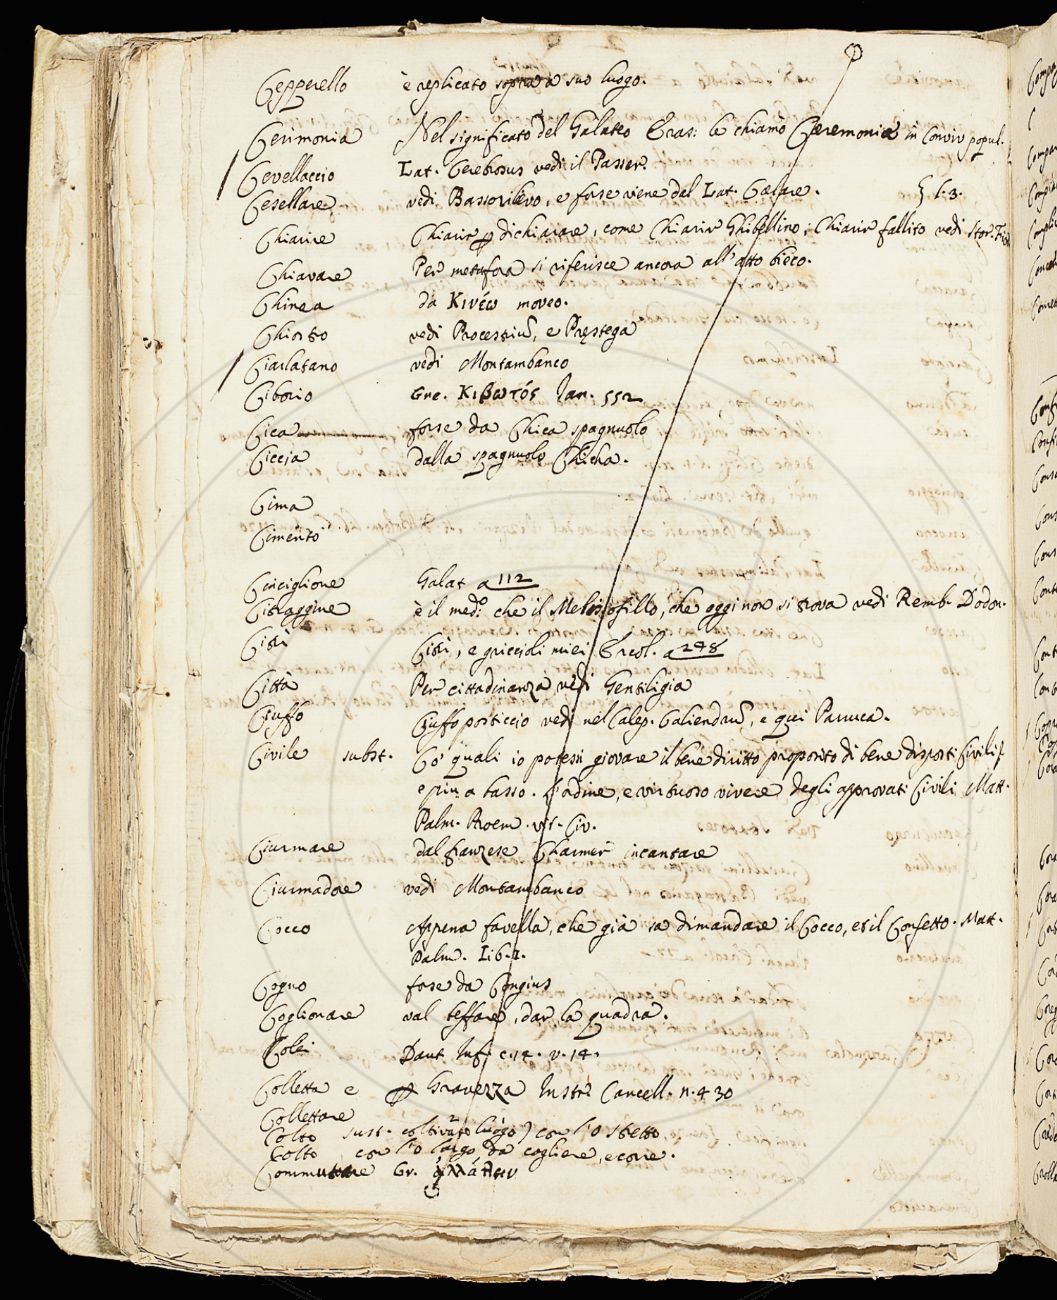 Cepperello è replicato sopra a suo luogo.
Cerimonia Nel significato del Galateo Eras: la chiamò Cæremoniæ in Conviv. popul.
Cevellaccio Lat. Cerebrosus vedi il Passer.
Cesellare vedi Bassorilievo, e forse viene del Lat. Cæsare. § l. 3.
Chiarire Chiarir p dichiarare, come Chiarir Ghibellino; Chiarir fallito vedi Stor.
Chiavare Per metafora si riferisce ancora all'atto bieco.
Chinea da Κινέω moveo.
Chiostro vedi Procestriũ, e Prestega
Ciarlatano vedi Montambanco
Ciborio Gre. Κιβωτός Jan. 552
Cica forse da Chica spagnuolo
Ciccia dalla spagnuolo Chicha.
Cima
Cimento
Cinciglione Galat a 112
Citraggine è il med.o che il Melissofillo, che oggi non si trova vedi Remb. Dodon.
Citì Citi, e griccioli miei Ercol. a 248
Città Per cittadinanza vedi Gentiligia
Ciuffo Ciuffo posticcio vedi nel Calep. Galiendrũ, e qui Parruca.
Civile subst. Co' quali io potessi giovare il bene diritto proposito di bene disposti Civili
e più a basso. L'ordine, e virtuoso vivere degli approvati Civili Matt.
Palm. Proem. vit. Civ.
Ciurmare dal franzese Charmer incantare
Ciurmadore vedi Montambanco
Cocco Appena favella, che già sa dimandare il Cocco, et il Confetto. Matt.
Palm. Lib. 1.
Cogno forse da Congius
Coglionare val beffare, dar la quadra.
Colei Dant. Inf. c. 14. v. 14.
Colletta e p Gravezza Instr. Cancell. n. 430
Collettare
Colto sust. coltivato luogo) con l'o stretto
Colto con l'o largo da cogliere, e corre.
Commutare Gr.